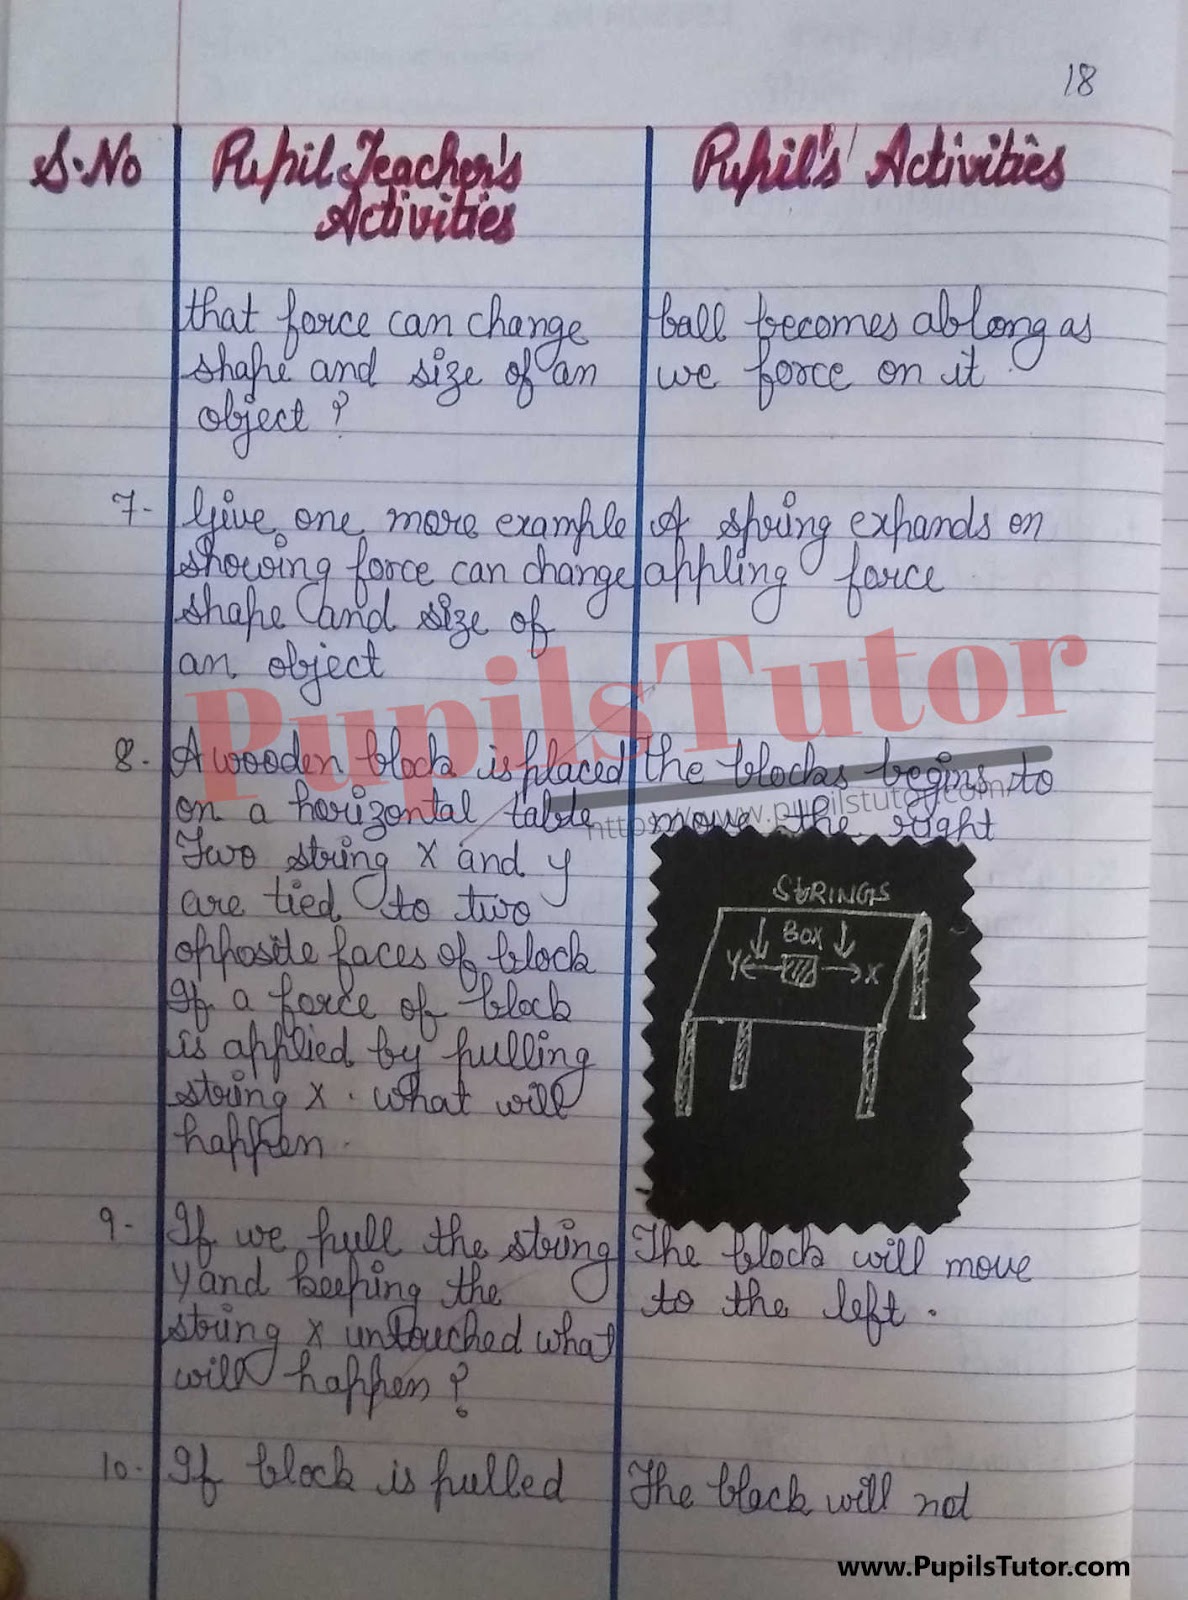 18
S.No
Pupil Teacher's
Activities
Pupil's Activities
that force can change
shape and size of an
object ?
ball becomes ablong as
we force on it
7-
Give one more example
showing force can change
shape and size of
an object
A spring expands on
appling force
PupilsTutor
https://www.pupilstutor.com/
8-
A wooden block is placed
on a horizontal table
Two string X and y
are tied to two
opposite faces of block
If a force of block
is applied by pulling
string X. what will
happen.
the blocks begins to
move the right
STRINGS
BOX
Y
X
9-
If we pull the string
Y and keeping the
string X untouched what
will happen ?
The block will move
to the left.
10-
If block is pulled
The block will not
www.PupilsTutor.com